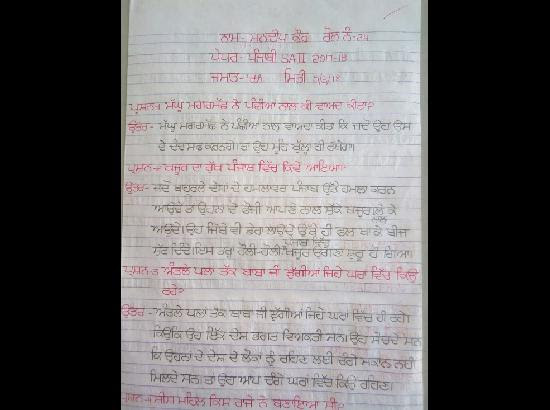 ਨਾਮ:- ਮਨਦੀਪ ਕੌਰ ਰੋਲ ਨੰ:-24
ਪੇਪਰ:- ਪੰਜਾਬੀ SAII 2017-18
ਜਮਾਤ:- ਮਿਤੀ
ਪ੍ਰਸ਼ਨ:-1 ਮੱਘੂ ਮਗਰਮੱਛ ਨੇ ਪੰਛੀਆਂ ਨਾਲ ਕੀ ਵਾਅਦਾ ਕੀਤਾ?
ਉੱਤਰ:- ਮੱਘੂ ਮਗਰਮੱਛ ਨੇ ਪੰਛੀਆਂ ਨਾਲ ਵਾਅਦਾ ਕੀਤਾ ਕਿ ਜਦੋਂ ਉਹ ਉਸ
ਦੇ ਦੰਦ ਸਾਫ਼ ਕਰਨਗੇ। ਤਾਂ ਉਹ ਮੂੰਹ ਖੁੱਲ੍ਹਾ ਹੀ ਰੱਖੇਗਾ।
ਪ੍ਰਸ਼ਨ:- ਖਜੂਰ ਦਾ ਰੁੱਖ ਪੰਜਾਬ ਵਿੱਚ ਕਿਵੇਂ ਆਇਆ?
ਉੱਤਰ:- ਜਦੋਂ ਬਾਹਰਲੇ ਦੇਸਾਂ ਦੇ ਹਮਲਾਵਰ ਪੰਜਾਬ ਉੱਤੇ ਹਮਲਾ ਕਰਨ
ਆਉਂਦੇ ਤਾਂ ਉਹਨਾਂ ਦੇ ਫੌਜੀ ਆਪਣੇ ਨਾਲ ਸੁੱਕੇ ਖਜੂਰਾਂ ਲੈ ਕੇ
ਆਉਂਦੇ। ਉਹ ਜਿੱਥੇ ਵੀ ਡੇਰਾ ਲਾਉਂਦੇ ਉੱਥੇ ਹੀ ਫਲ ਖਾ ਕੇ ਬੀਜ
ਸੁੱਟ ਦਿੰਦੇ। ਇਸ ਤਰ੍ਹਾਂ ਹੌਲੀ-ਹੌਲੀ ਪੰਜਾਬ ਵਿੱਚ ਖਜੂਰ ਉੱਗਣਾ ਸ਼ੁਰੂ ਹੋ ਗਿਆ।
ਪ੍ਰਸ਼ਨ:-3 ਅੰਤਲੇ ਪਲਾਂ ਤੱਕ ਬਾਬਾ ਜੀ ਝੁੱਗੀਆਂ ਜਿਹੇ ਘਰਾਂ ਵਿੱਚ ਕਿਉਂ
ਰਹੇ?
ਉੱਤਰ:- ਅੰਤਲੇ ਪਲਾਂ ਤੱਕ ਬਾਬਾ ਜੀ ਝੁੱਗੀਆਂ ਜਿਹੇ ਘਰਾਂ ਵਿੱਚ ਹੀ ਰਹੇ।
ਕਿਉਂਕਿ ਉਹ ਇੱਕ ਦੇਸ ਭਗਤ ਵਿਅਕਤੀ ਸਨ। ਉਹ ਸੋਚਦੇ ਸਨ
ਕਿ ਉਹਨਾਂ ਦੇ ਦੇਸ ਦੇ ਲੋਕਾਂ ਨੂੰ ਰਹਿਣ ਲਈ ਚੰਗੇ ਮਕਾਨ ਨਹੀਂ
ਮਿਲਦੇ ਸਨ। ਤਾਂ ਉਹ ਆਪ ਚੰਗੇ ਘਰਾਂ ਵਿੱਚ ਕਿਉਂ ਰਹਿਣ।
ਪ੍ਰਸ਼ਨ:-4 ਸ਼ੀਸ਼ ਮਹਿਲ ਕਿਸ ਰਾਜੇ ਨੇ ਬਣਾਇਆ ਸੀ?